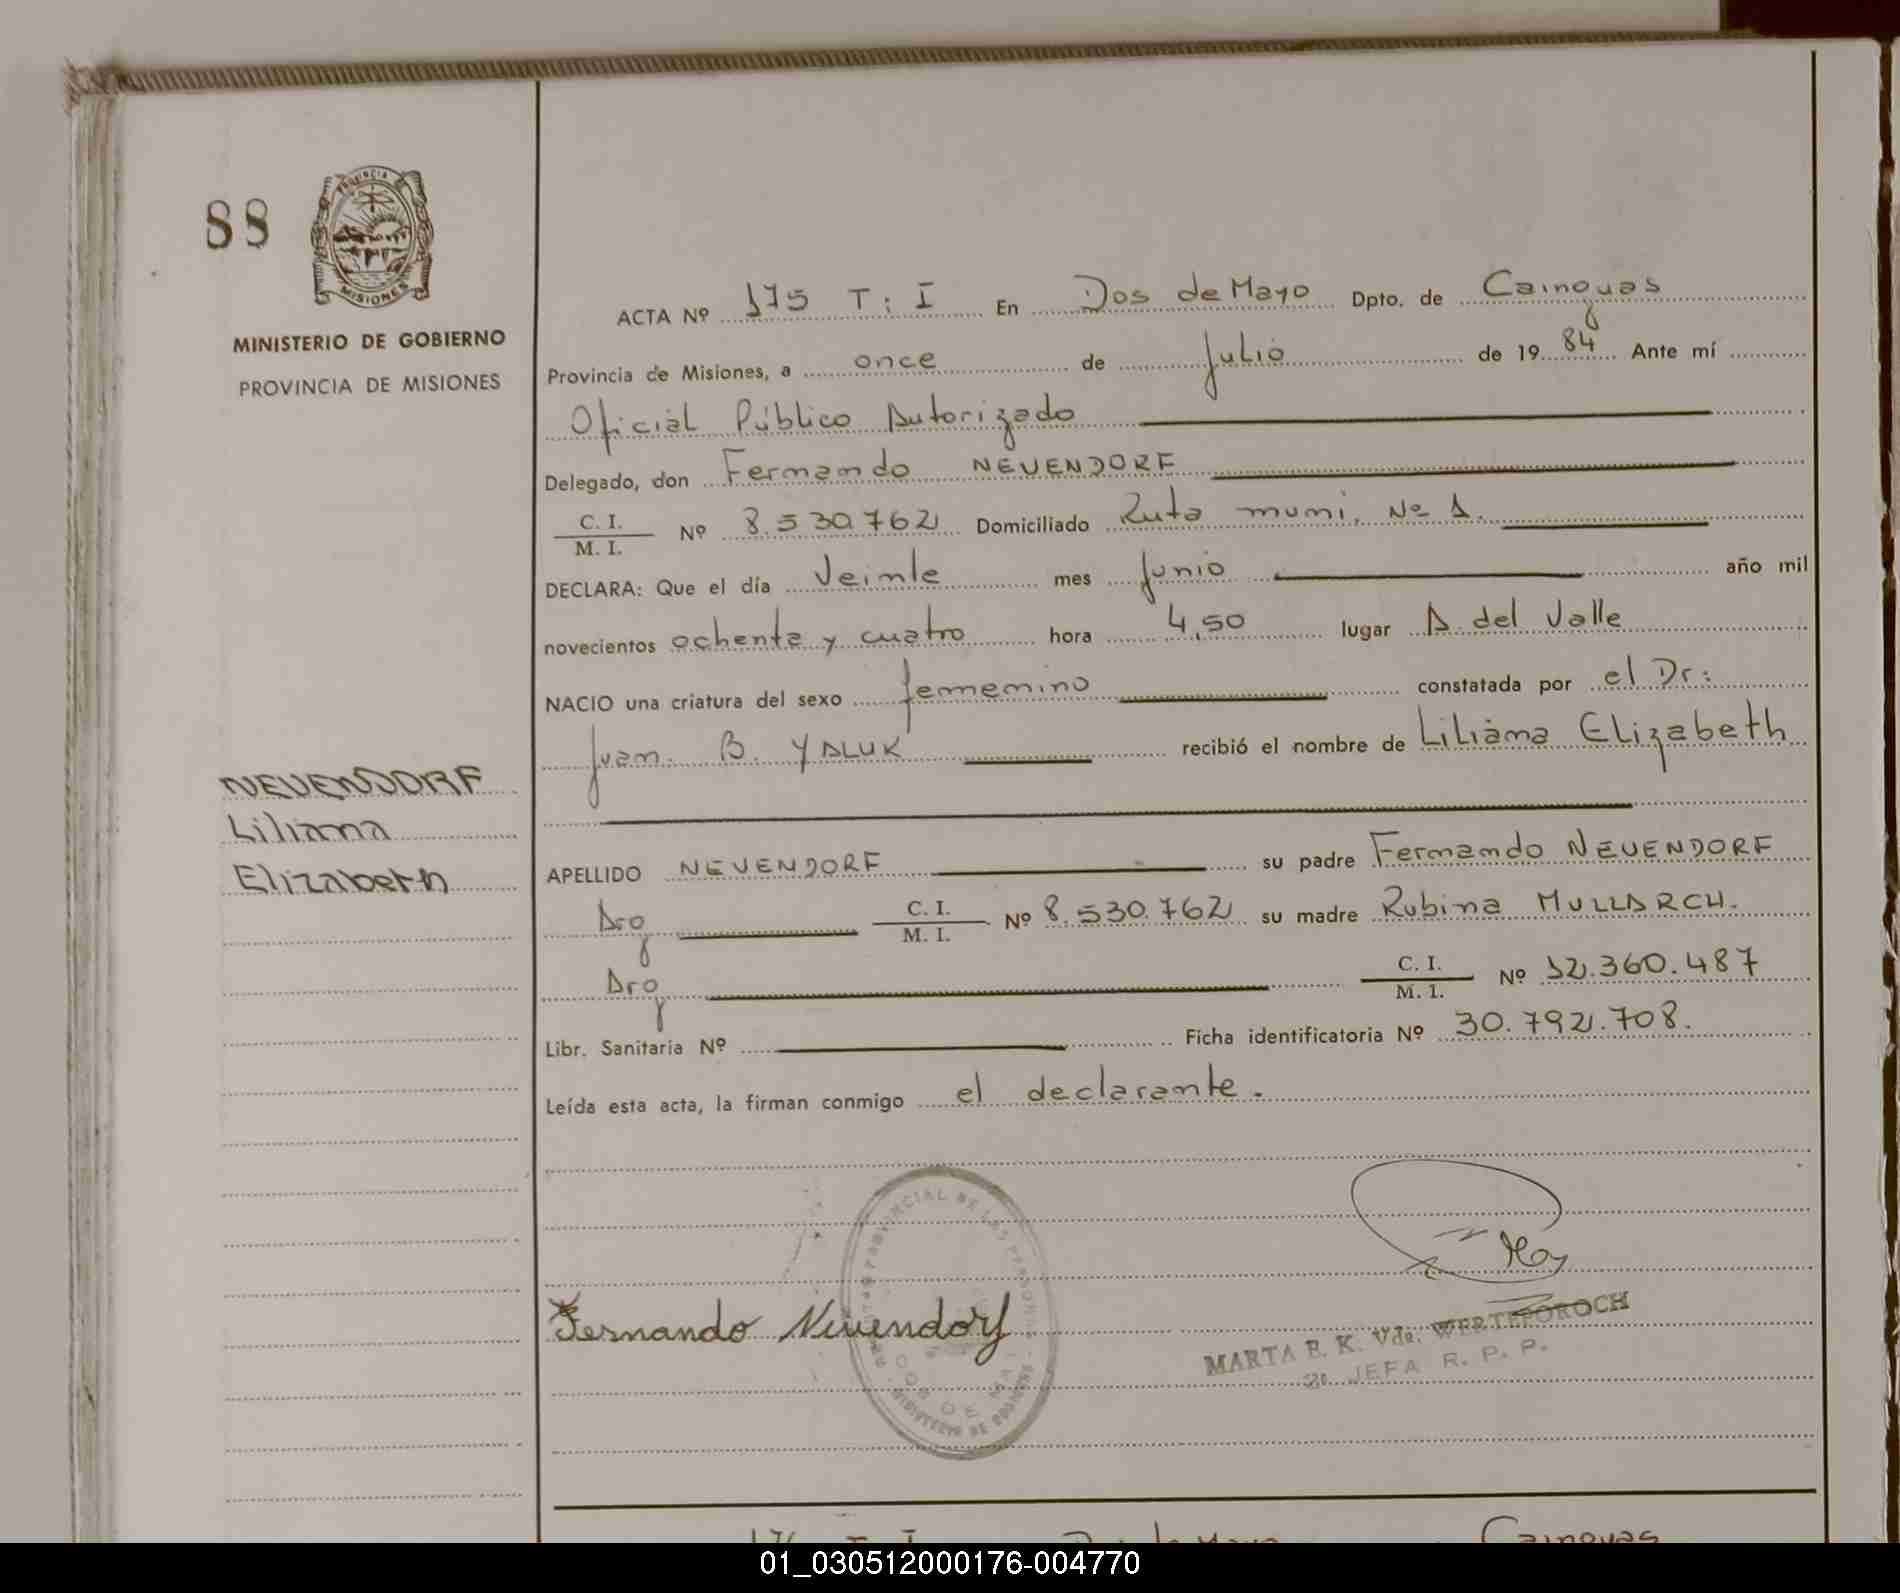 88
PROVINCIA
MISIONES
MINISTERIO DE GOBIERNO
PROVINCIA DE MISIONES
ACTA Nº 175 T: I En Dos de Mayo Dpto. de Cainguas
Provincia de Misiones, a once de Julio de 19 84 Ante mí
Oficial Público Autorizado
Delegado, don Fernando NEUENDORF
C. I.
M. I. Nº 8.530.762 Domiciliado Ruta muni. Nº 1.
DECLARA: Que el día Veinte mes Junio año mil
novecientos ochenta y cuatro hora 4,50 lugar A. del Valle
NACIO una criatura del sexo femenino constatada por el Dr:
Juan B. YALUK recibió el nombre de Liliana Elizabeth
NEUENDORF
Liliana
Elizabeth
APELLIDO NEUENDORF su padre Fernando NEUENDORF
Arg C. I.
M. I. Nº 8.530.762 su madre Rubina MULLARCH.
Arg C. I.
M. I. Nº 12.360.487
Libr. Sanitaria Nº Ficha identificatoria Nº 30.792.708.
Leída esta acta, la firman conmigo el declarante.
PROVINCIAL DE LAS PERSONAS
DOS DE MAYO
MINISTERIO DE GOBIERNO
Fernando Neuendorf
MARTA E. K. Vda. WERTEFOROCH
JEFA R. P. P.
Cainguas
01_030512000176-004770